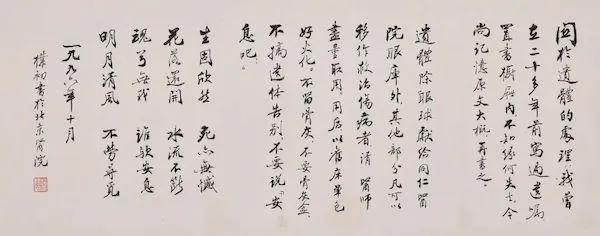 関於遺體的處理,我曾
在二十多年前寫過遺嘱
置書橱屉内不知緣何失去。今
尚记憶原文大概,再書之。
遺體除眼球獻给同仁醫
院眼库外,其他部分凡可以
移作救治傷病者,请醫师
盡量取用。用后以舊床單包
好火化。不留骨灰,不要骨灰盒,
不搞遗体告别,不要说“安
息吧”。
生固欣然 死亦無憾
花落還開 水流不断
魂兮無我 誰欤安息
明月清風 不勞尋覓
一九九六年十月
樸初書於北京醫院